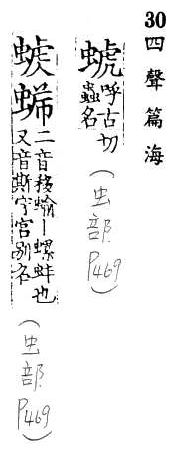 30 四聲篇海
呼古切
蟲名
（虫部 P469）
二音移蝓｜螺蚌也
又音斯守宫别名
（虫部 P469）